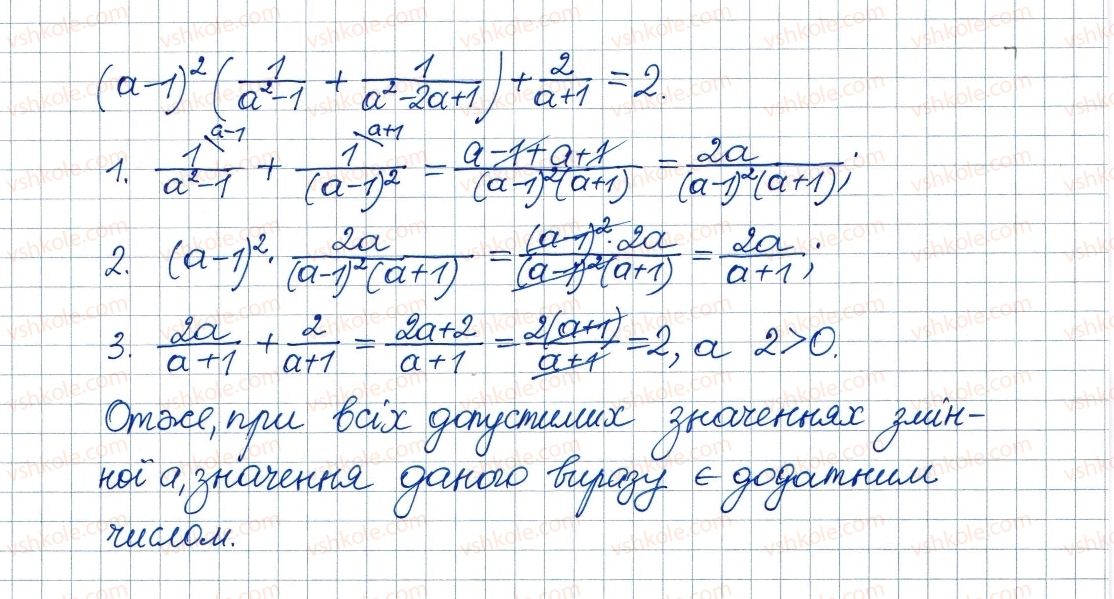 (a-1)² (1/(a²-1) + 1/(a²-2a+1)) + 2/(a+1) = 2.
1. 1\a-1/(a²-1) + 1\a+1/(a-1)² = (a-1+a+1)/((a-1)²(a+1)) = 2a/((a-1)²(a+1));
2. (a-1)² · 2a/((a-1)²(a+1)) = ((a-1)²·2a)/((a-1)²(a+1)) = 2a/(a+1);
3. 2a/(a+1) + 2/(a+1) = (2a+2)/(a+1) = 2(a+1)/(a+1) = 2, а 2>0.
Отже, при всіх допустимих значеннях змін-
ної a, значення даного виразу є додатним
числом.